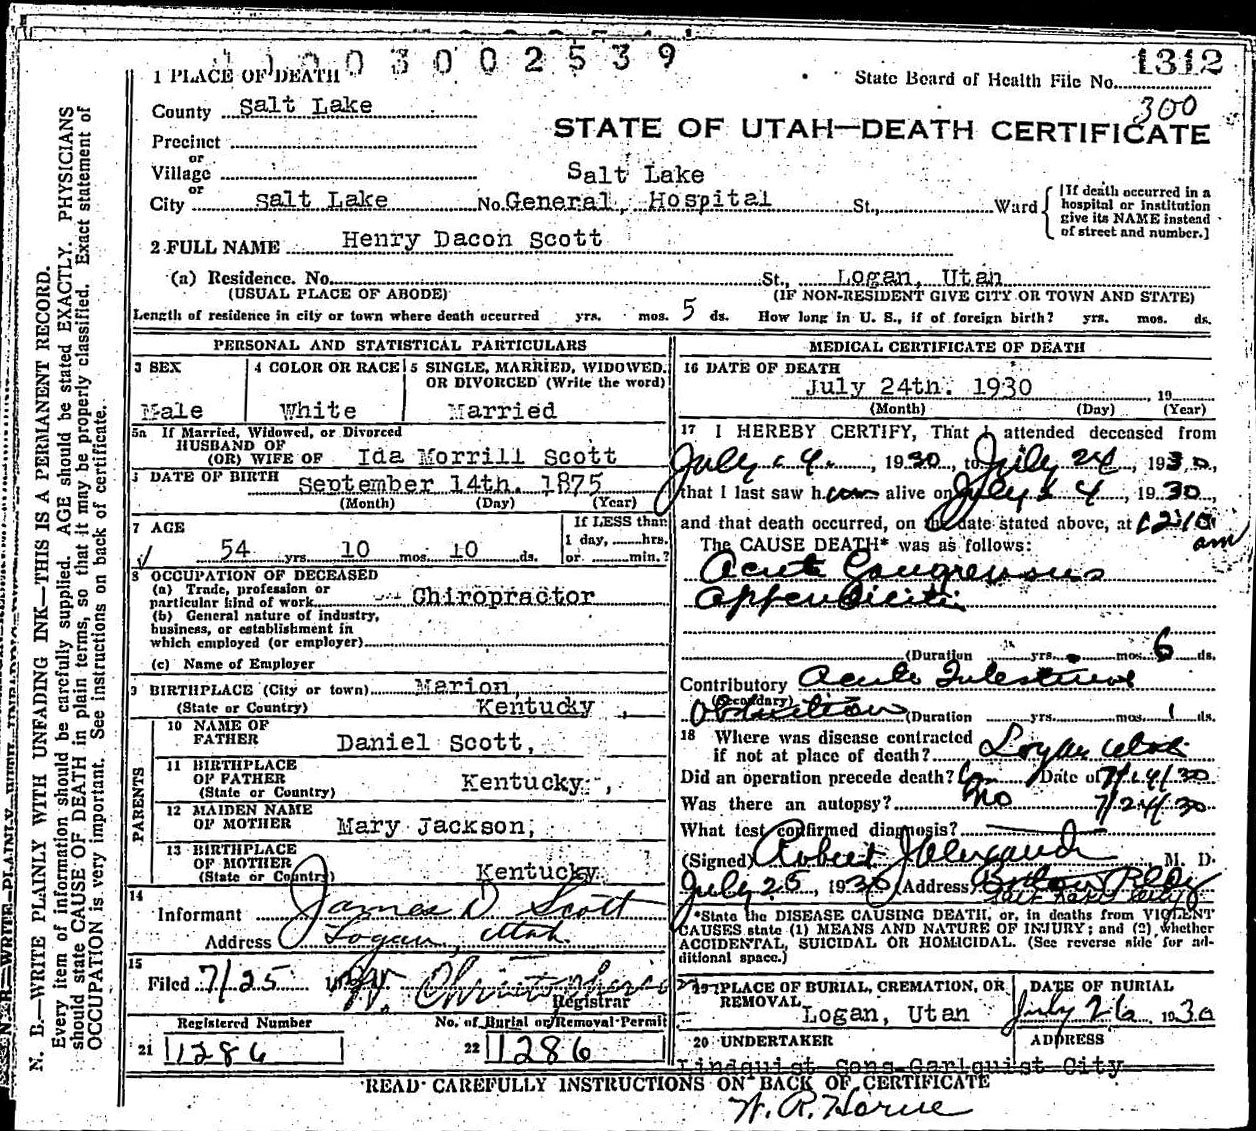 0 0 3 0 0 2 5 3 9
1312
1 PLACE OF DEATH
State Board of Health File No.
300
County Salt Lake
STATE OF UTAH—DEATH CERTIFICATE
Precinct
or
Village
or
City Salt Lake No. Salt Lake General Hospital St., Ward
[If death occurred in a
hospital or institution
give its NAME instead
of street and number.]
2 FULL NAME Henry Dacon Scott
(a) Residence. No. St., Logan, Utah
(USUAL PLACE OF ABODE) (IF NON-RESIDENT GIVE CITY OR TOWN AND STATE)
Length of residence in city or town where death occurred yrs. mos. 5 ds. How long in U. S., if of foreign birth? yrs. mos. ds.
PERSONAL AND STATISTICAL PARTICULARS
3 SEX
Male
4 COLOR OR RACE
White
5 SINGLE, MARRIED, WIDOWED,
OR DIVORCED (Write the word)
Married
5a If Married, Widowed, or Divorced
HUSBAND OF
(OR) WIFE OF Ida Morrill Scott
DATE OF BIRTH September 14th. 1875
(Month) (Day) (Year)
7 AGE
54 yrs. 10 mos. 10 ds.
If LESS than
1 day, hrs.
or min.?
8 OCCUPATION OF DECEASED
(a) Trade, profession or
particular kind of work Chiropractor
(b) General nature of industry,
business, or establishment in
which employed (or employer)
(c) Name of Employer
9 BIRTHPLACE (City or town) Marion,
(State or Country) Kentucky ,
PARENTS
10 NAME OF
FATHER Daniel Scott,
11 BIRTHPLACE
OF FATHER
(State or Country) Kentucky ,
12 MAIDEN NAME
OF MOTHER Mary Jackson,
13 BIRTHPLACE
OF MOTHER
(State or Country) Kentucky
14
Informant James D Scott
Address Logan, Utah
15
Filed 7/25
Registrar
Registered Number
21 1286
No. of Burial or Removal Permit
22 1286
MEDICAL CERTIFICATE OF DEATH
16 DATE OF DEATH
July 24th. 1930 , 19
(Month) (Day) (Year)
17 I HEREBY CERTIFY, That I attended deceased from
July , 1930 to July 24 , 1930,
that I last saw h alive on July 24 , 1930
and that death occurred, on the date stated above, at 1210
am
The CAUSE DEATH* was as follows:
Acute Gangrenous
Appendicitis
(Duration yrs. mos. 6 ds.
Contributory Acute Intestinal
(Secondary)
Obstruction (Duration yrs. mos. 1 ds.
18 Where was disease contracted
if not at place of death? Logan Utah
Did an operation precede death? Date of 7/19/30
Was there an autopsy? no 7/24/30
What test confirmed diagnosis?
(Signed) Robert J Alexander M. D.
July 25, 1930 (Address)
Salt Lake City
*State the DISEASE CAUSING DEATH, or, in deaths from VIOLENT
CAUSES state (1) MEANS AND NATURE OF INJURY; and (2) whether
ACCIDENTAL, SUICIDAL OR HOMICIDAL. (See reverse side for ad-
ditional space.)
19 PLACE OF BURIAL, CREMATION, OR
REMOVAL
Logan, Utah
DATE OF BURIAL
July 26 1930
20 UNDERTAKER
ADDRESS
Lindquist Sons Garlquist City
READ CAREFULLY INSTRUCTIONS ON BACK OF CERTIFICATE
N. B.—WRITE PLAINLY WITH UNFADING INK—THIS IS A PERMANENT RECORD.
Every item of information should be carefully supplied. AGE should be stated EXACTLY. PHYSICIANS
should state CAUSE OF DEATH in plain terms, so that it may be properly classified. Exact statement of
OCCUPATION is very important. See instructions on back of certificate.